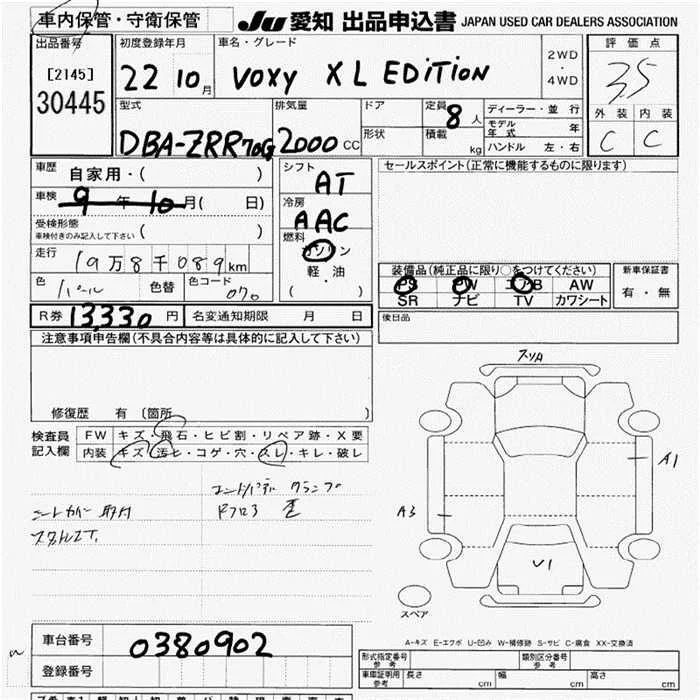 車内保管・守衛保管
JU 愛知 出品申込書 JAPAN USED CAR DEALERS ASSOCIATION
出品番号 初度登録年月 車名・グレード 評価点
[2145] 22 10月 VOXY X L EDITION 2WD・4WD 3.5
30445
型式 排気量 ドア 定員 8人 ディーラー・並行 外装 内装
DBA-ZRR70G 2000CC 形状 積載 kg モデル年式 年 C C
ハンドル 左・右
車歴 自家用・( ) シフト AT セールスポイント(正常に機能するものに限ります)
車検 9年10月( 日) 冷房 AAC
受検形態 車検付きのみ記入して下さい ( ) 燃料 ガソリン
走行 19万8千089km 軽・油 装備品(純正品に限り○をつけてください) 新車保証書
色 パール 色替 色コード 070 ( ) PS PW エアB AW 有・無
SR ナビ TV カワシート
R券 13,330円 名変通知期限 月 日 後日品
注意事項申告欄(不具合内容等は具体的に記入して下さい)
修復歴 有 〔箇所 〕
検査員記入欄 FW キズ・飛石・ヒビ割・リペア跡・X要
内装 キズ・汚ヒ・コゲ・穴・スレ・キレ・破レ
A1
シートカバー取付 A3
U1
スペア
A-キズ E-エクボ U-凹み W-補修跡 S-サビ C-腐食 XX-交換済
車台番号 0380902
登録番号
形式指定番号 参考 類別区分番号 参考
車庫証明用 参考 長さ cm 幅 cm 高さ cm